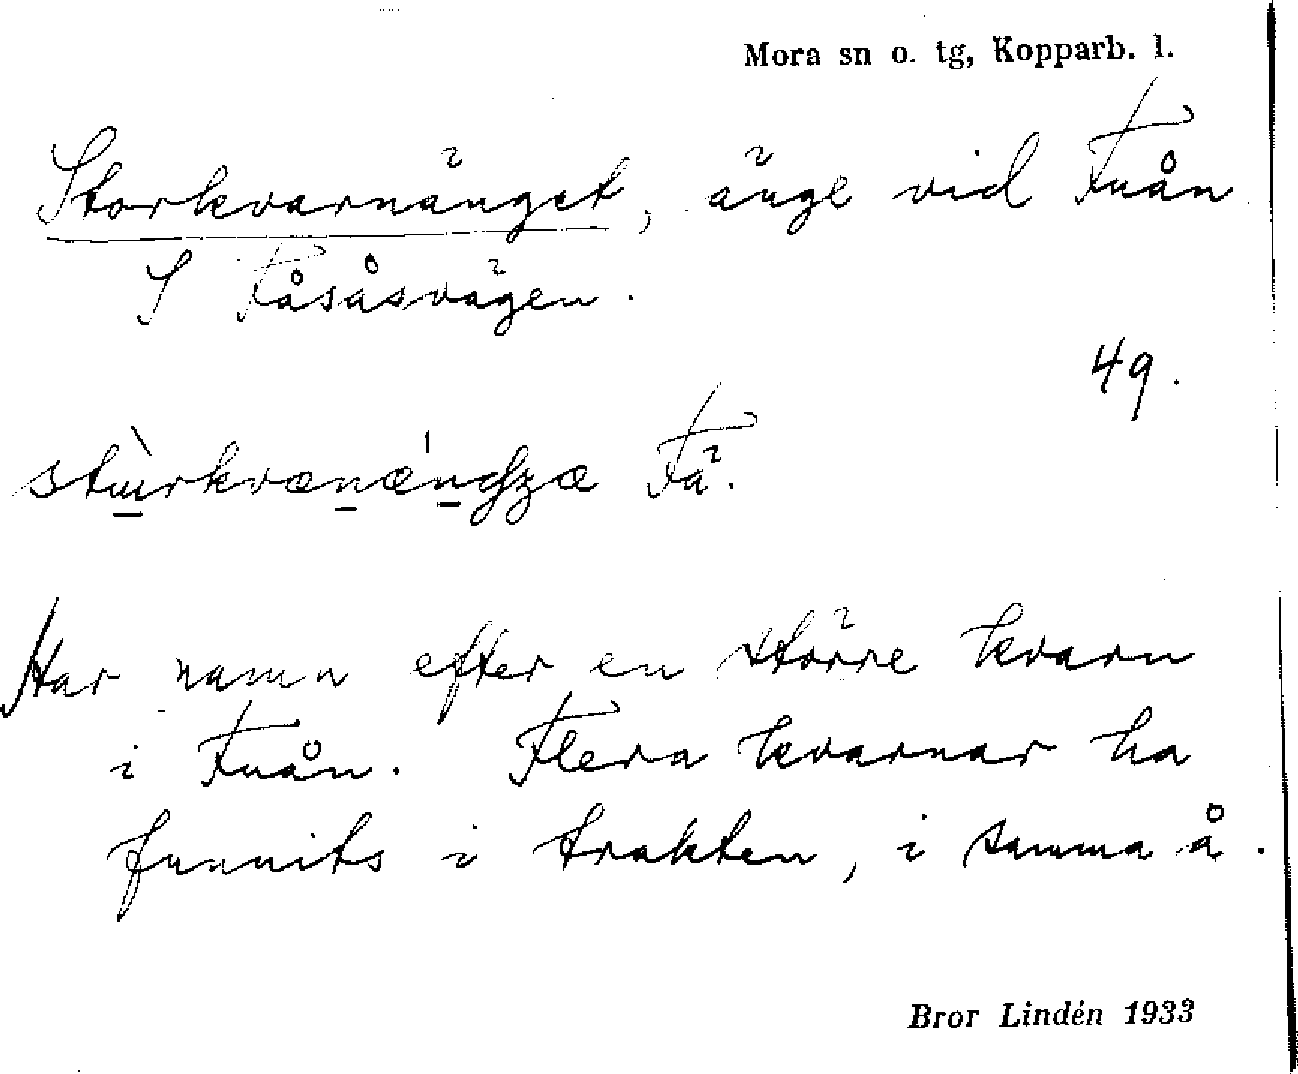 Mora sn o. tg, Kopparb. l.
Storkvarnänget, änge vid Fuån
S Fåsåsvägen.
49.
Fä.
Har namn efter en större kvarn
i Fuån. Flera kvarnar ha
funnits i trakten, i samma å.
Bror Lindén 1933